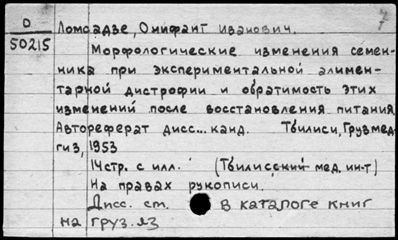 D Ломоадзе, Онифант Иванович. 7
50215
Морфологические изменения семен-
ника при экспериментальной алимен-
тарной дистрофии и обратимость этих
изменений после восстановления питания
Автореферат дисс... канд. Тбилиси, Грузмед
гиз, 1953
14стр. с илл. (Тбилисский мед. ин-т)
На правах рукописи.
Дисс. ст. в каталоге книг
на груз. яз